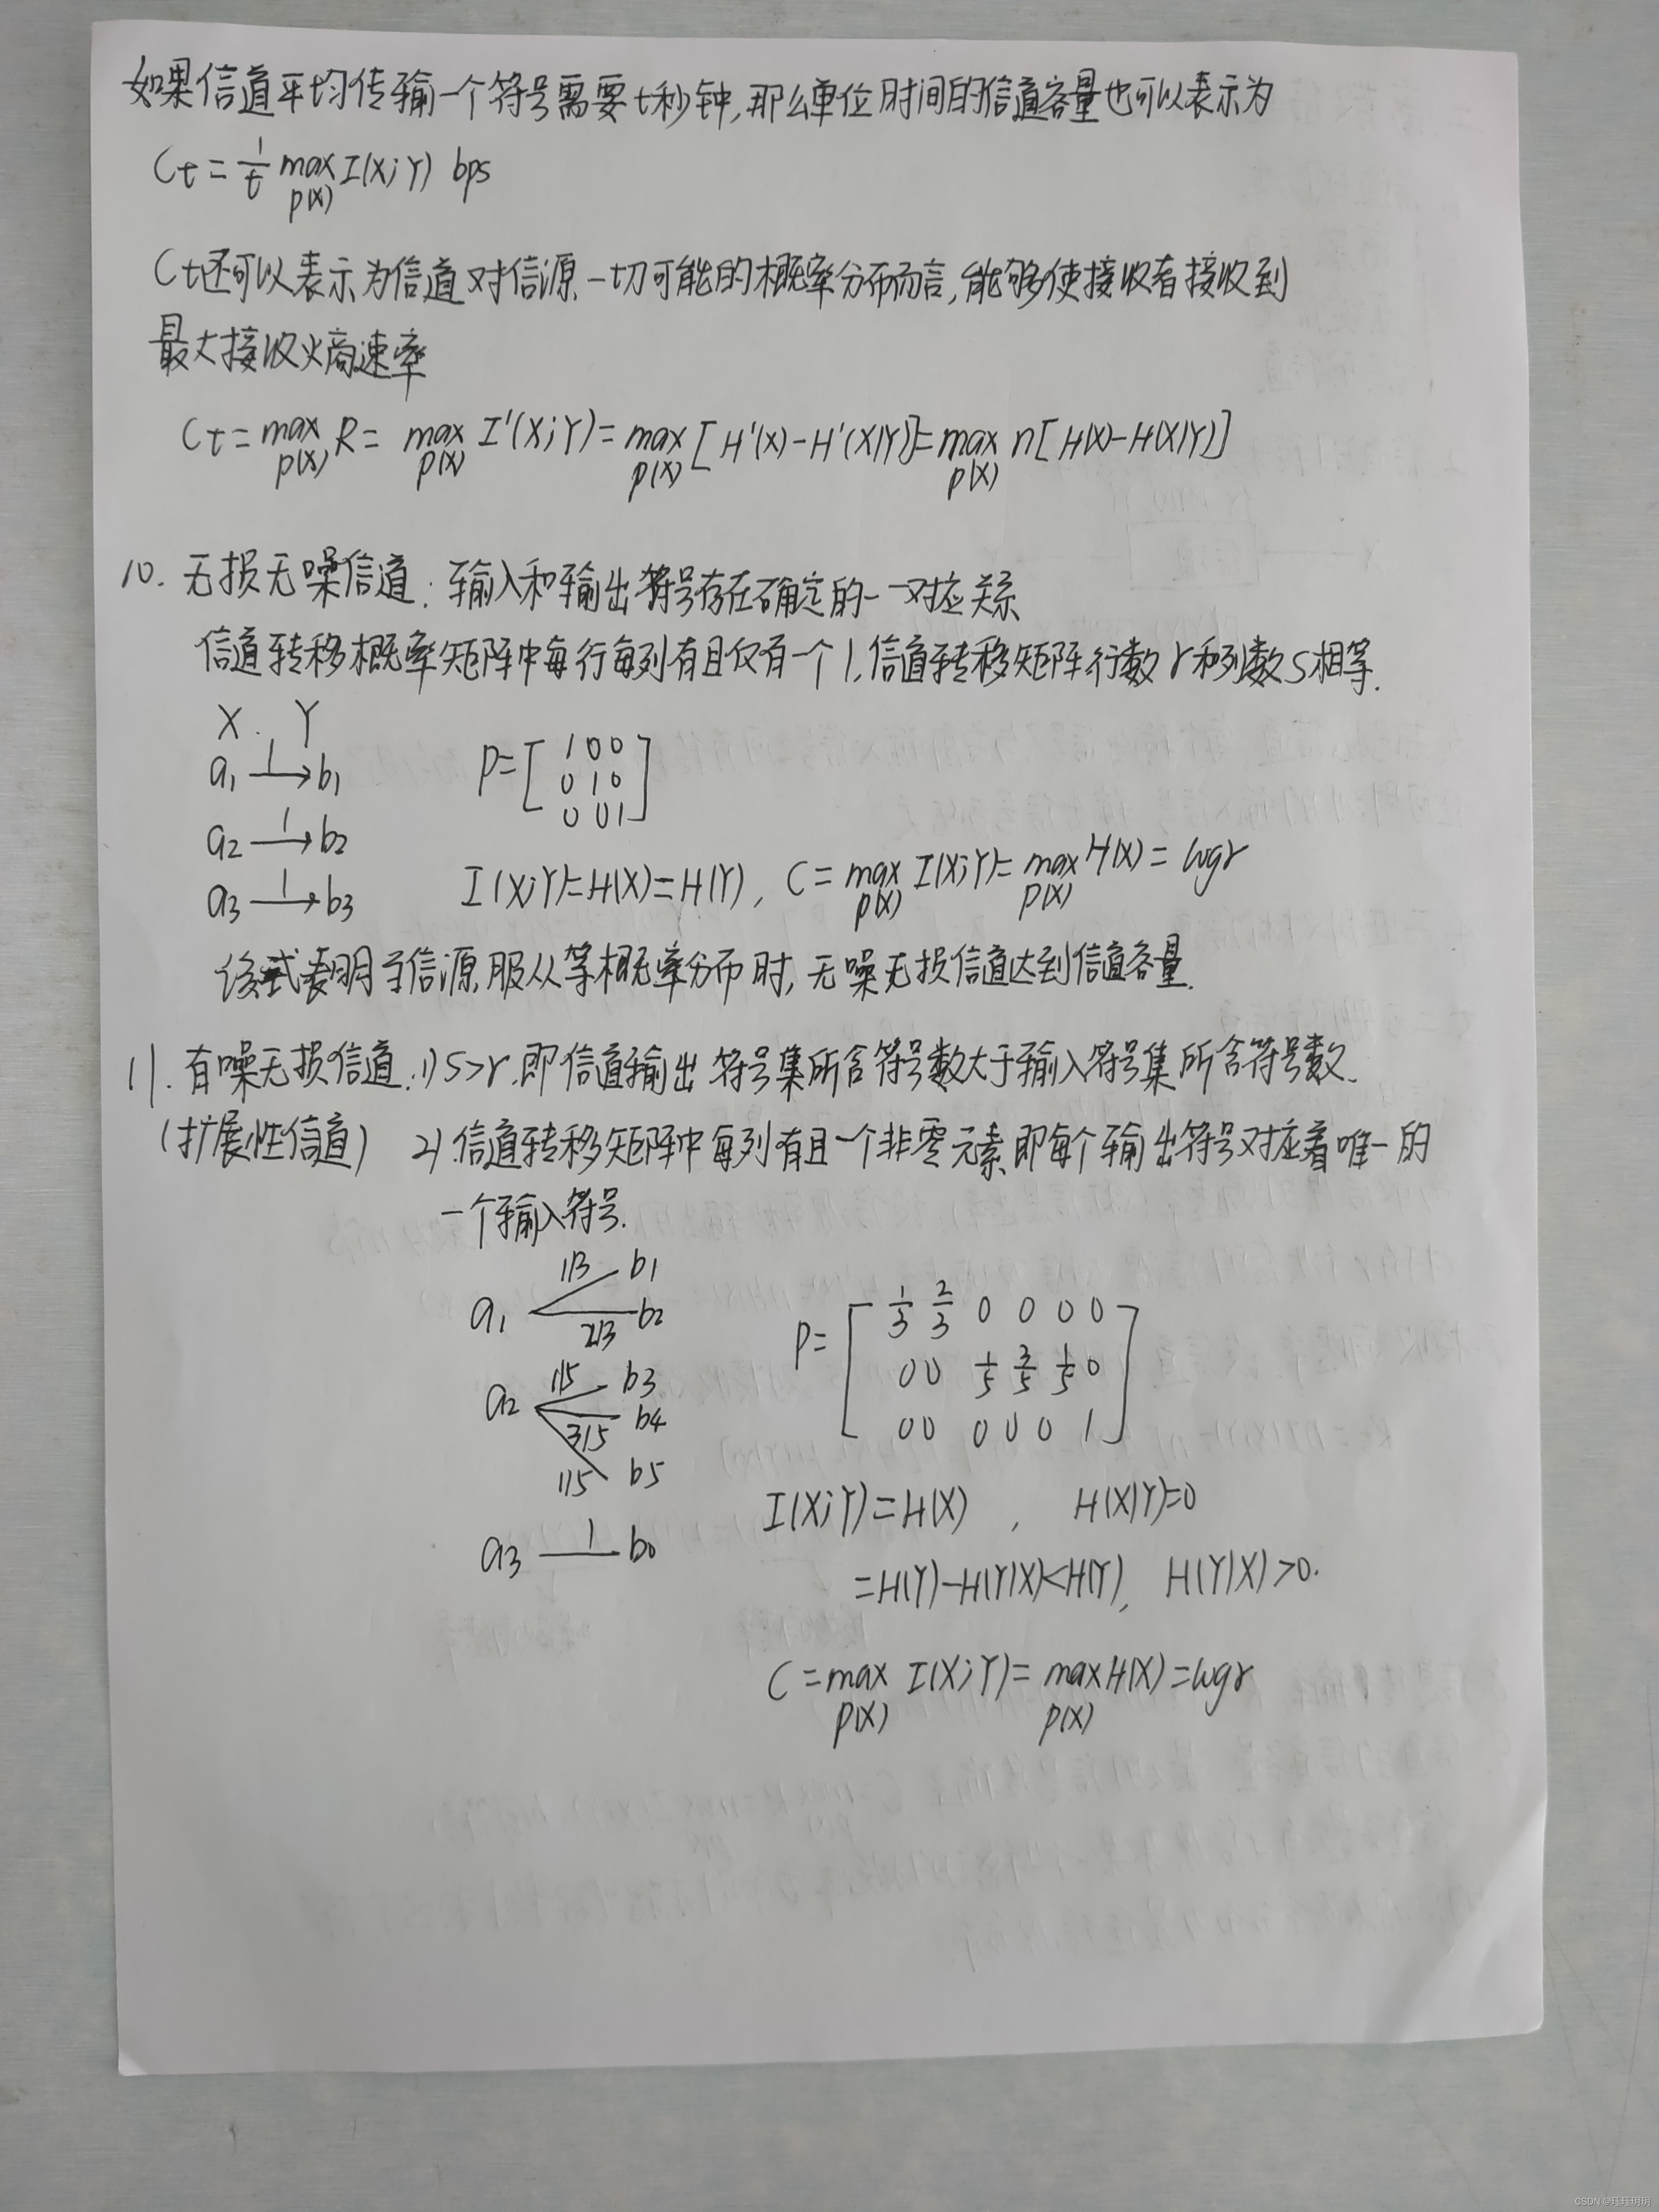 如果信道平均传输一个符号需要t秒钟,那么单位时间的信道容量也可以表示为
Ct = 1/t max p(X) I(X;Y) bps
Ct还可以表示为信道对信源一切可能的概率分布而言,能够使接收者接收到
最大接收熵速率
Ct = max p(X) R = max p(X) I'(X;Y) = max p(X) [H'(X)-H'(X|Y)] = max p(X) n[H(X)-H(X|Y)]
10. 无损无噪信道: 输入和输出符号存在确定的一一对应关系
信道转移概率矩阵中每行每列有且仅有一个1,信道转移矩阵行数r和列数s相等.
X Y
a1 —1→ b1
a2 —1→ b2
a3 —1→ b3
P= [ 1 0 0
0 1 0
0 0 1 ]
I(X;Y)=H(X)=H(Y), C = max p(X) I(X;Y) = max p(X) H(X) = logr
该式表明当信源服从等概率分布时,无噪无损信道达到信道容量.
11. 有噪无损信道: 1) s>r,即信道输出符号集所含符号数大于输入符号集所含符号数.
(扩展性信道) 2) 信道转移矩阵中每列有且一个非零元素,即每个输出符号对应着唯一的
一个输入符号.
a1 1/3 b1
2/3 b2
a2 1/5 b3
3/5 b4
1/5 b5
a3 1 b6
P= [ 1/3 2/3 0 0 0 0
0 0 1/5 3/5 1/5 0
0 0 0 0 0 1 ]
I(X;Y)=H(X) , H(X|Y)=0
=H(Y)-H(Y|X)<H(Y), H(Y|X)>0.
C = max p(X) I(X;Y) = max p(X) H(X) = logr
CSDN @玨玨玥玥